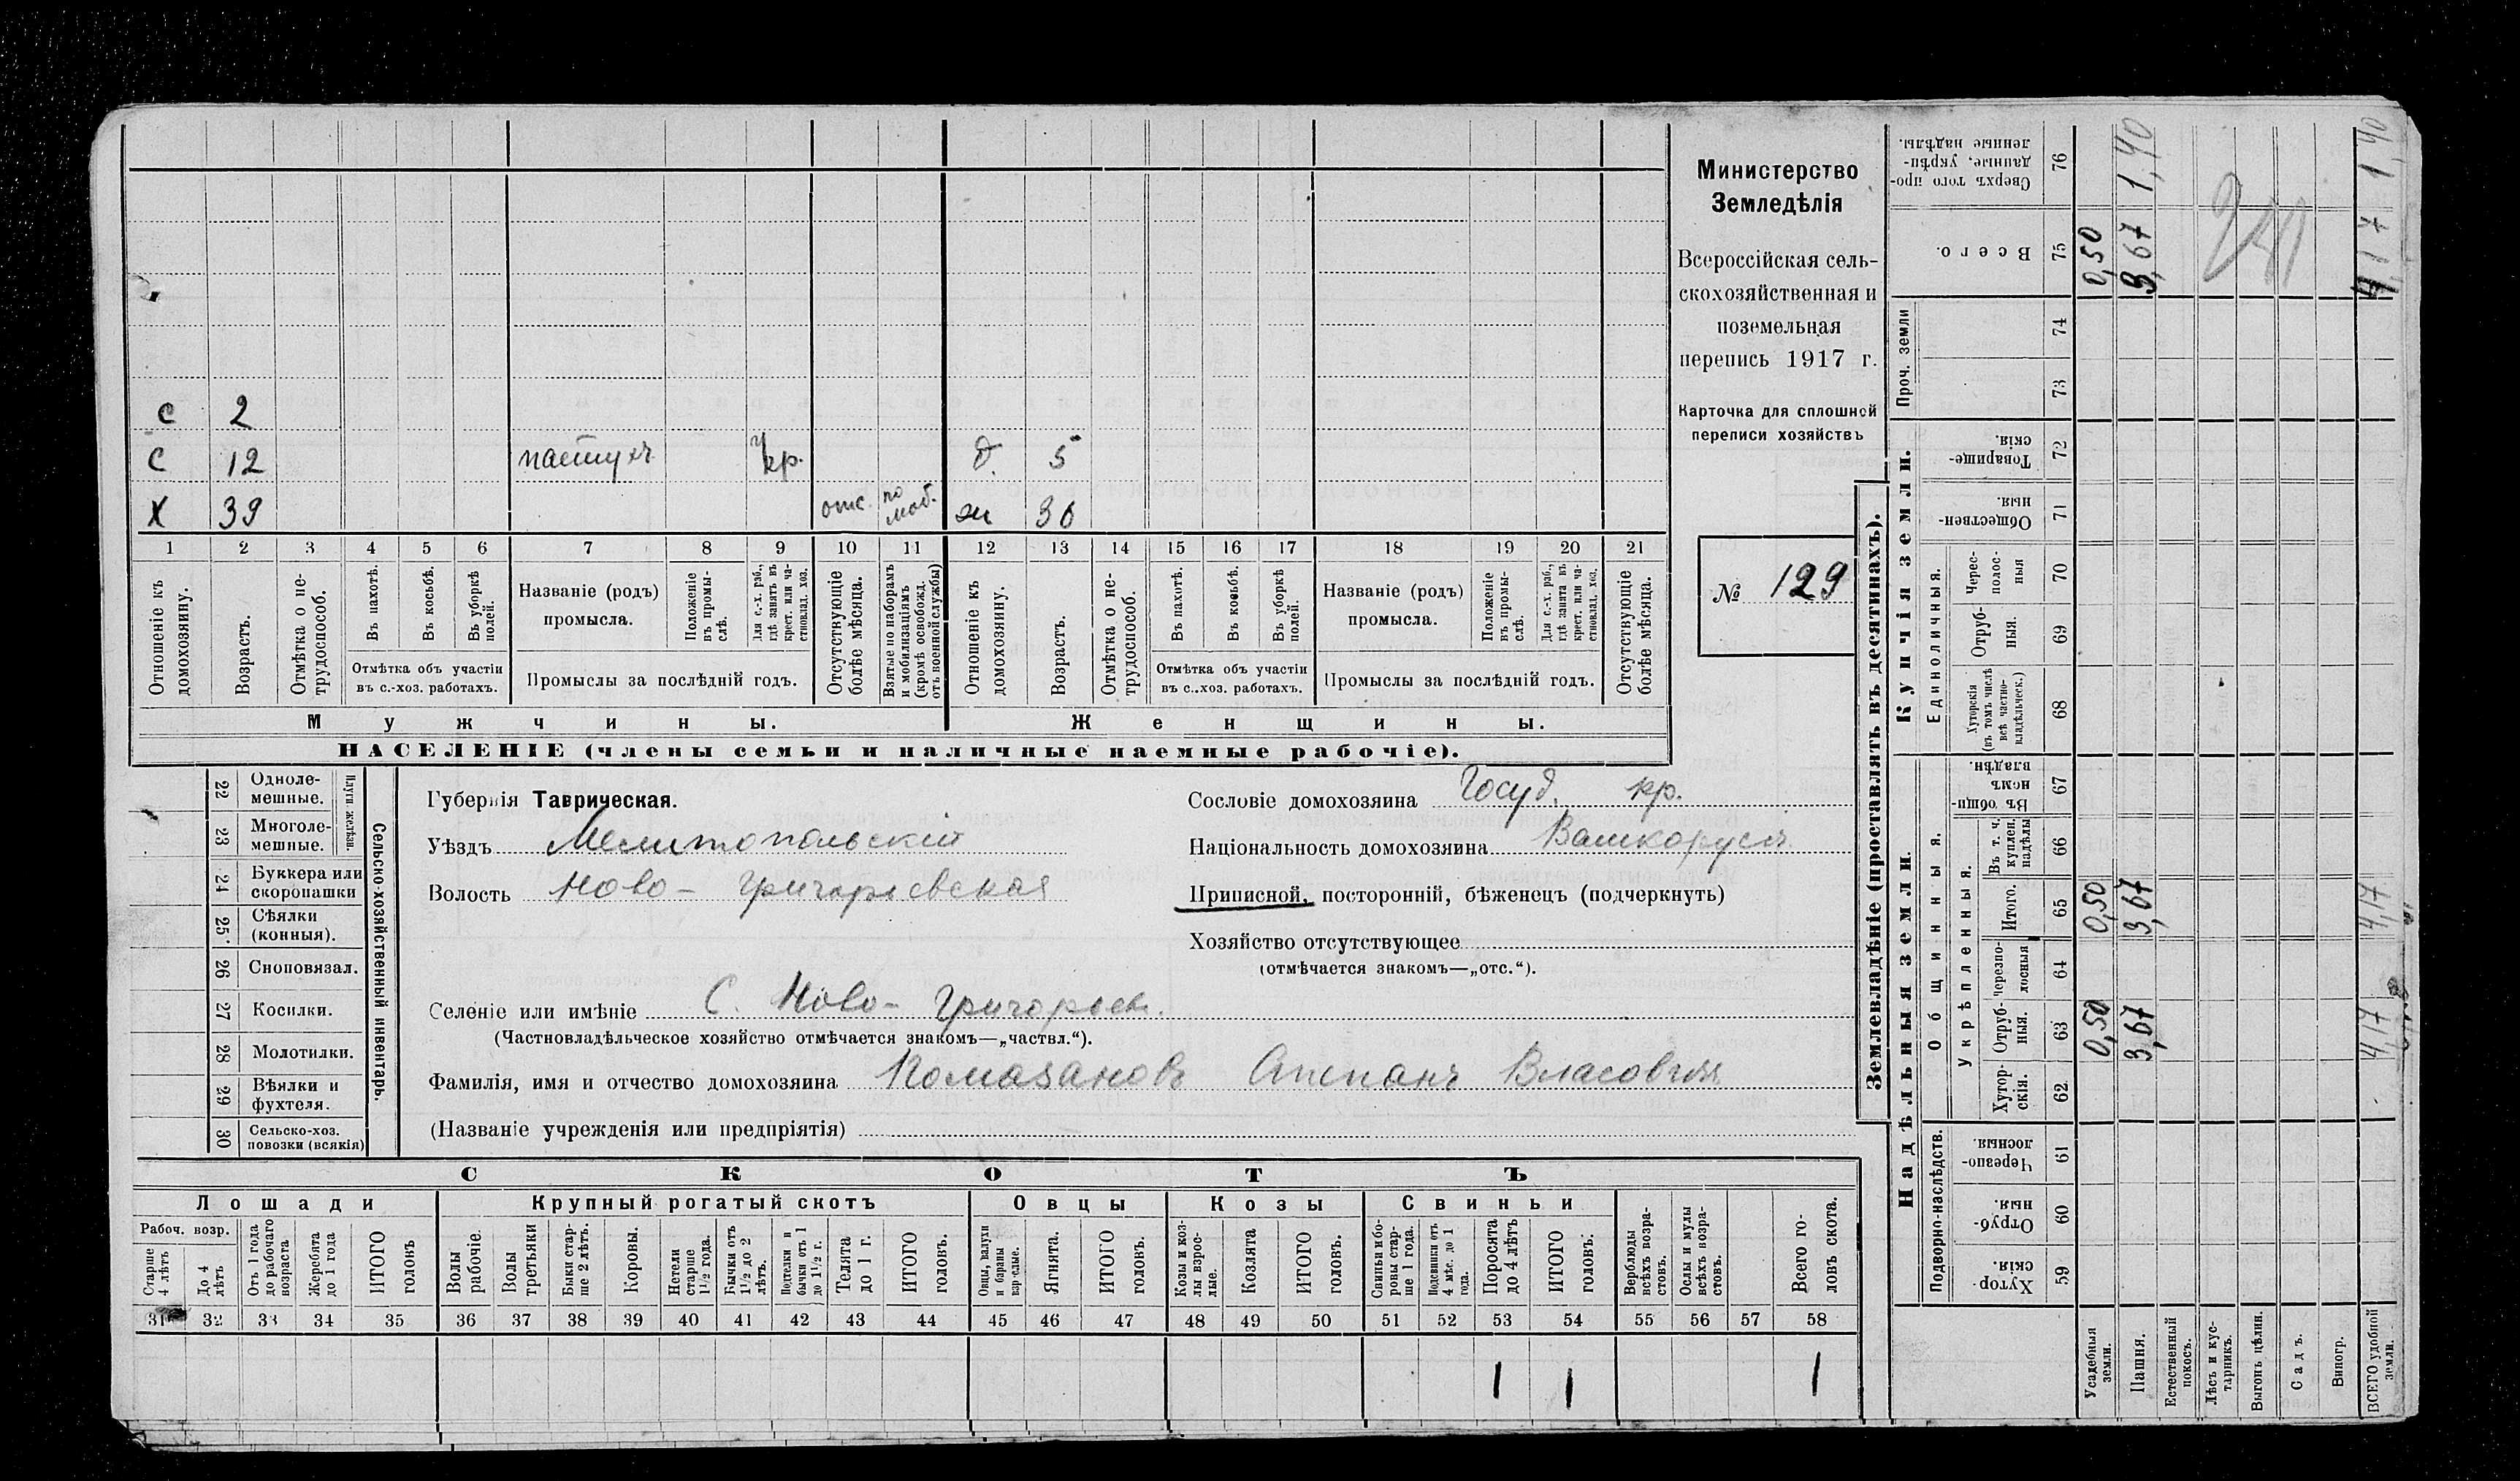 Министерство
Земледѣлія
Всероссійская сель-
скохозяйственная и
поземельная
перепись 1917 г.
Карточка для сплошной
переписи хозяйствъ
№ 129
С 2
С 12 пастухъ кр. д. 5
Х 39 отс. по моб. ж 36
1 2 3 4 5 6 7 8 9 10 11 12 13 14 15 16 17 18 19 20 21
Отношеніе къ домохозяину.
Возрастъ.
Отмѣтка о не-трудоспособ.
Въ пахотѣ.
Въ косьбѣ.
Въ уборкѣ полей.
Отмѣтка объ участіи
въ с.-хоз. работахъ.
Названіе (родъ)
промысла.
Положеніе въ промы-слѣ.
Для с.-х. раб., гдѣ занятъ въ крест. или ча-стновлад. хоз.
Промыслы за послѣдній годъ.
Отсутствующіе болѣе мѣсяца.
Взятые по наборамъ и мобилизаціямъ (кромѣ освобожд. отъ военной службы)
Отношеніе къ домохозяину.
Возрастъ.
Отмѣтка о не-трудоспособ.
Въ пахотѣ.
Въ косьбѣ.
Въ уборкѣ полей.
Отмѣтка объ участіи
въ с.-хоз. работахъ.
Названіе (родъ)
промысла.
Положеніе въ промы-слѣ.
Для с.-х. раб., гдѣ занята въ крест. или ча-стновлад. хоз.
Промыслы за послѣдній годъ.
Отсутствующіе болѣе мѣсяца.
Мужчины. Женщины.
НАСЕЛЕНІЕ (члены семьи и наличные наемные рабочіе).
22 Одноле-мешные.
23 Многоле-мешные.
Плуги желѣзн.
24 Буккера или скоропашки
25 Сѣялки (конныя).
26 Сноповязал.
27 Косилки.
28 Молотилки.
29 Вѣялки и фухтеля.
30 Сельско-хоз. повозки (всякія)
Сельско-хозяйственный инвентарь.
Губернія Таврическая.
Уѣздъ Мелитопольскій
Волость Ново-Григорьевская
Селеніе или имѣніе С. Ново-Григорьев.
(Частновладѣльческое хозяйство отмѣчается знакомъ—„частвл.“).
Фамилія, имя и отчество домохозяина Помазановъ Степанъ Власовичъ
(Названіе учрежденія или предпріятія)
Сословіе домохозяина Госуд. кр.
Національность домохозяина
Приписной, посторонній, бѣженецъ (подчеркнуть)
Хозяйство отсутствующее
(отмѣчается знакомъ—„отс.“).
СКОТЪ
Лошади Крупный рогатый скотъ Овцы Козы Свиньи
Рабоч. возр.
Старше 4 лѣтъ
До 4 лѣтъ
Отъ 1 года до рабочаго возраста
Жеребята до 1 года
ИТОГО головъ
Волы рабочіе.
Волы третьяки
Быки стар-ше 2 лѣтъ.
Коровы.
Нетели старше 1 1/2 года.
Бычки отъ 1 1/2 до 2 лѣтъ.
Подтелки и бычки отъ 1 до 1 1/2 г.
Телята до 1 г.
ИТОГО головъ.
Овцы, валухи и бараны взрослые.
Ягнята.
ИТОГО головъ.
Козы и коз-лы взрос-лые.
Козлята
ИТОГО головъ.
Свиньи и бо-ровы стар-ше 1 года.
Подсвинки отъ 4 мѣс. до 1 года.
Поросята до 4 лѣтъ
ИТОГО головъ.
Верблюды всѣхъ возра-стовъ.
Ослы и мулы всѣхъ возра-стовъ.
Всего го-ловъ скота.
31 32 33 34 35 36 37 38 39 40 41 42 43 44 45 46 47 48 49 50 51 52 53 54 55 56 57 58
1 1 1
Землевладѣніе (проставлять въ десятинахъ).
Сверхъ того про-данные, укрѣп-ленные надѣлы. 76 1,40 1,40
Всего. 75 0,50 3,67 4,17
241
Проч. земли
74
73
Купчія земли.
Товарище-скія. 72
Обществен-ныя 71
Единоличныя.
Черес-полос-ныя 70
Отруб-ныя. 69
Хуторскія (въ томъ числѣ всѣ частно-владѣльческ.) 68
Надѣльныя земли.
Общинныя.
Въ общи-номъ владѣн. 67
Укрѣпленныя.
Въ т. ч. куплен. надѣлы 66
Итого. 65 0,50 3,67 4,17
Черезпо-лосныя 64
Отруб-ныя. 63 0,50 3,67 4,17
Хутор-скія. 62
Подворно-наслѣдств.
Черезпо-лосныя. 61
Отруб-ныя. 60
Хутор-скія. 59
Усадебныя земли.
Пашня.
Естественный покосъ.
Лѣсъ и кус-тарникъ.
Выгонъ цѣлин.
Садъ.
Виногр.
ВСЕГО удобной земли.